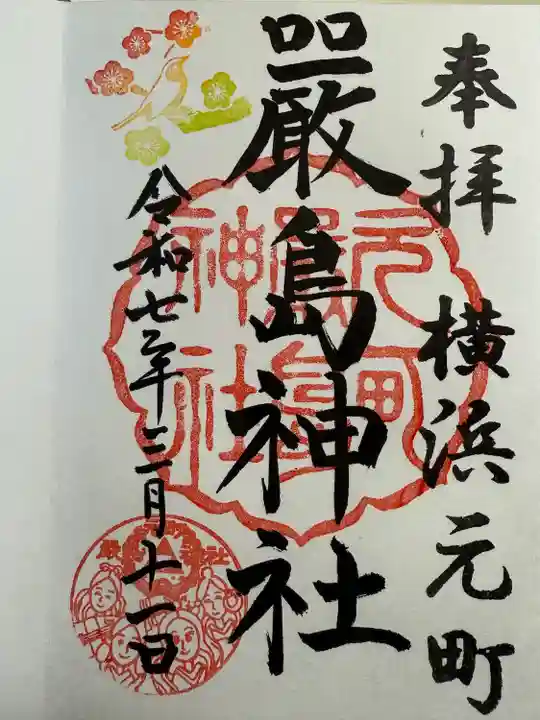 奉拝 横浜元町
元町
嚴島
神社
嚴島神社
令和七年三月十一日